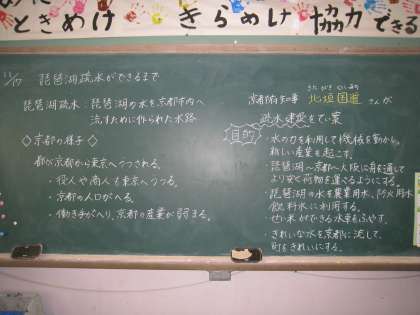 ときめけ きらめけ 協力できる
11/17 琵琶湖疏水ができるまで
琵琶湖疏水：琵琶湖の水を京都市内へ
流すために作られた水路
◇京都の様子◇
都が京都から東京へうつされる。
・役人や商人も東京へうつる。
・京都の人口がへる。
・働き手がへり、京都の産業が弱まる。
京都府知事 北垣国道さんが
きたがき くにみち
疏水建設をてい案
目的
・水の力を利用して機械を動かし、
新しい産業を起こす。
・琵琶湖〜京都〜大阪に舟を通して
より安く荷物を運べるようにする。
・琵琶湖の水を農業用水、防火用水
飲料水に利用する。
・せい米ができる水車もふやす。
・きれいな水を京都に流して、
町をきれいにする。